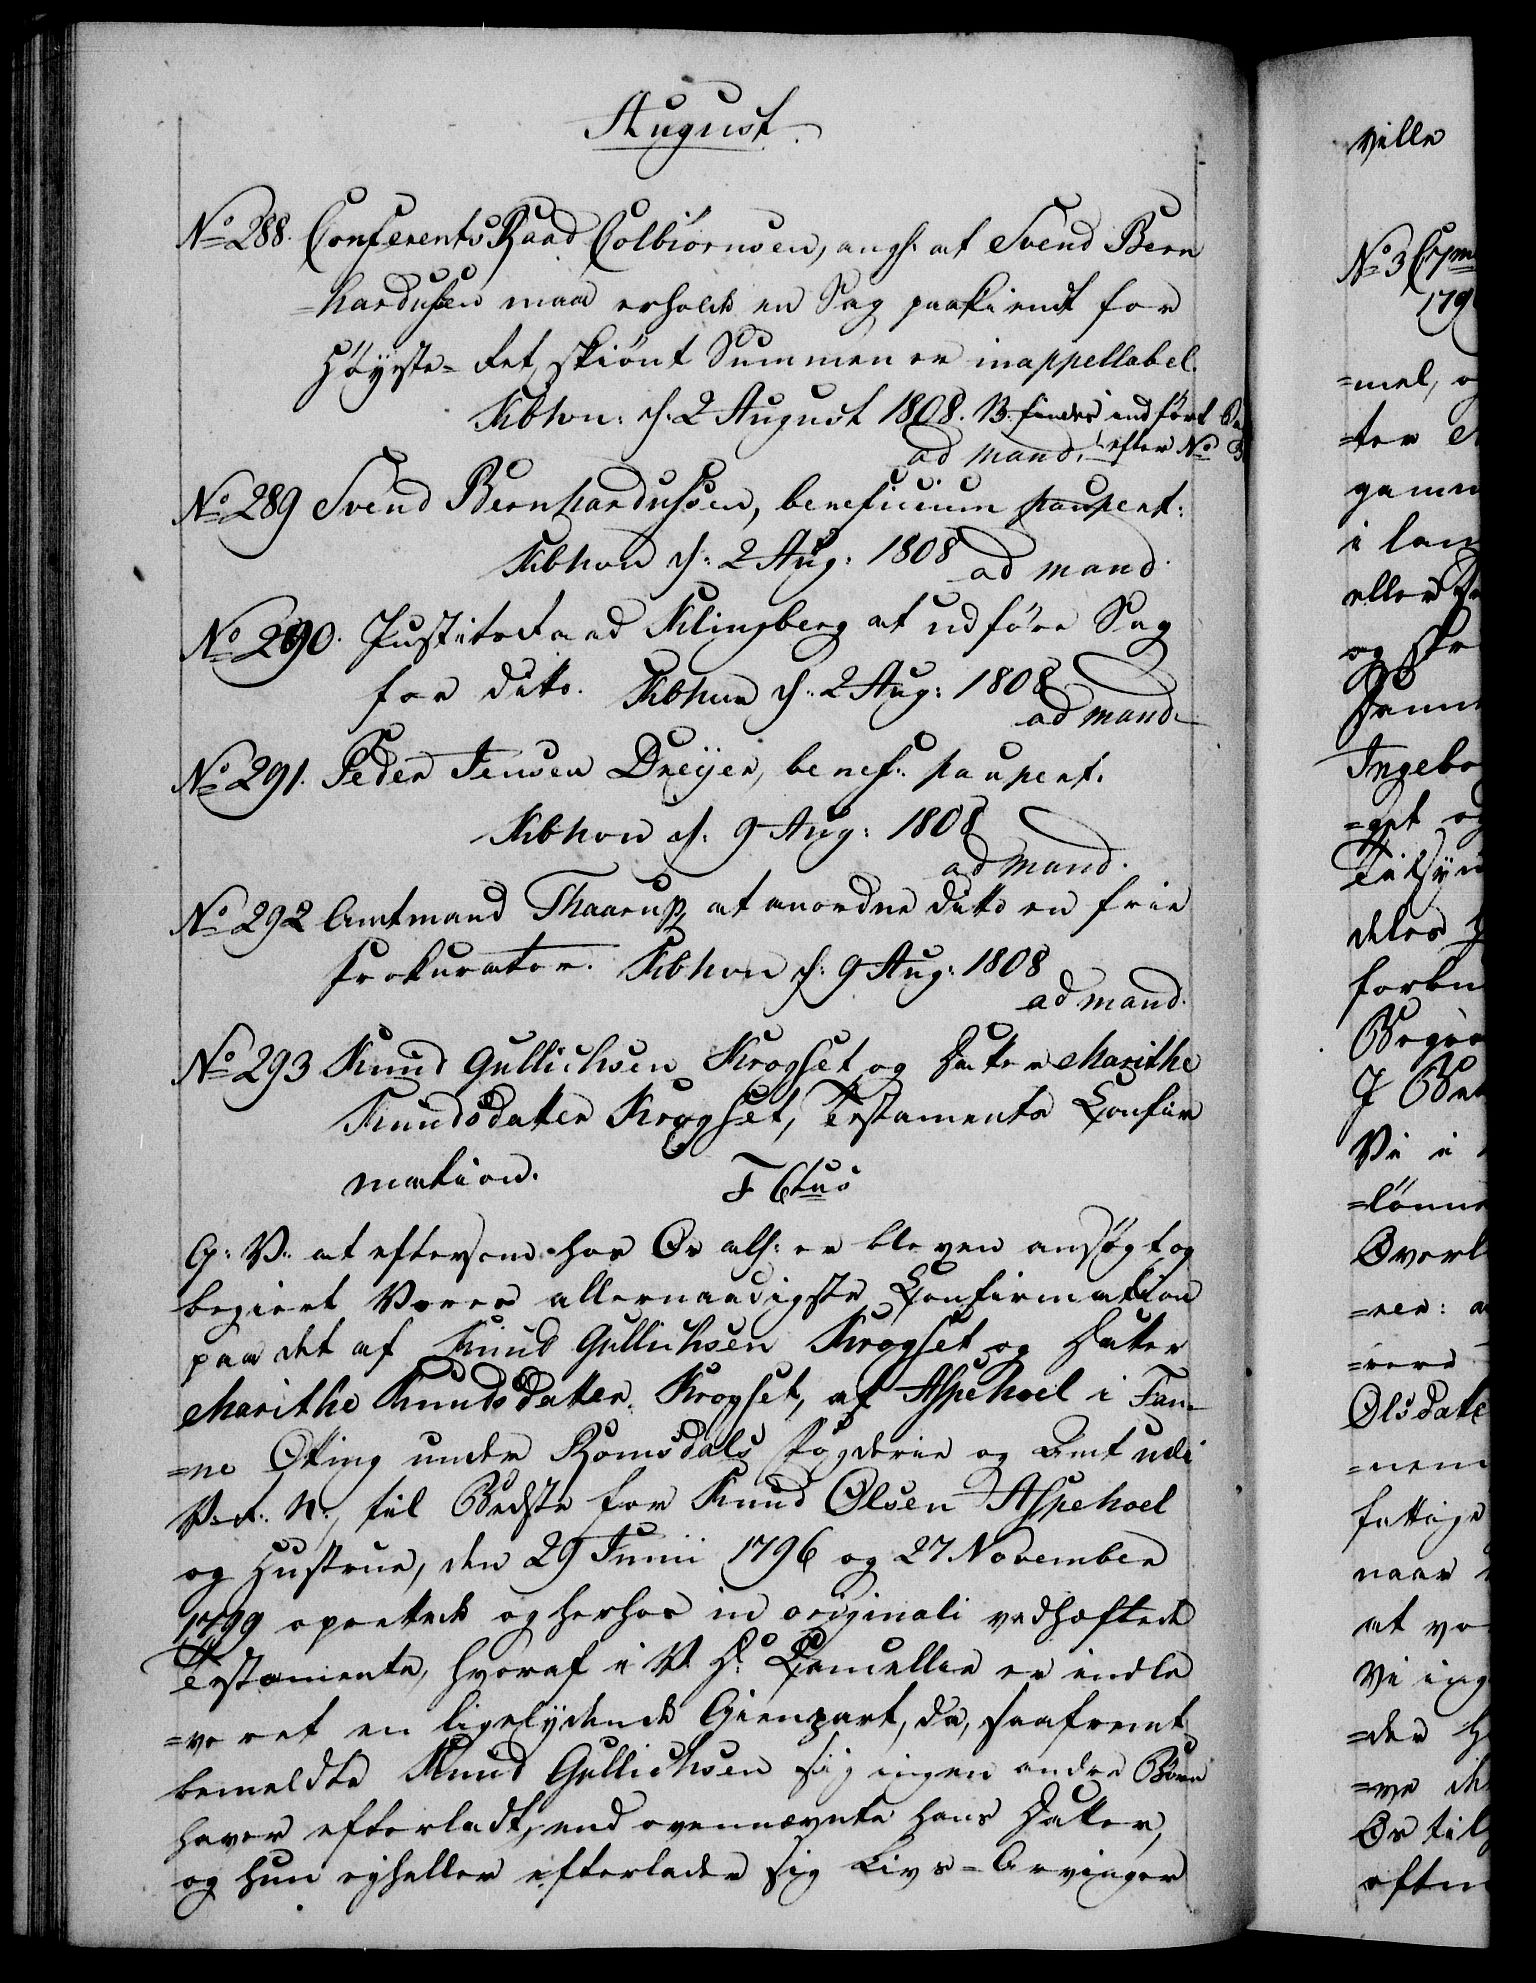 August
No 288. Conferents Raad Colbiørnsen, angl. at Svend Bern
=hardussen maa erholde en Sag paakiendt for
Høyeste=Ret, skiønt Summen er inappellabel.
Kbhvn: d. 2 August 1808. findes indført
ad mand. efter No
No 289 Svend Bernhardussen, beneficium paupert:
Kbhvn d: 2 Aug: 1808 ad mand.
No 290. Justitsraad Klingberg at udføre Sag
for ditto. Kbhvn d: 2 Aug: 1808
ad mand.
No 291. Peder Jensen Dreÿer, benef: paupert.
Kbhvn d: 9 Aug: 1808
ad mand.
No 292 Amtmand Thaarup at anordne ditto en frie
Prokurator. Kbhvn d: 9 Aug: 1808
ad mand.
No 293 Knud Gullichsen Krogset og Datter Marithe
Knudsdatter Krogset, Testaments Confir
mation. F 6tus
G: V: at eftersom hos Os alh: er bleven ansøgt og
begiert Vores allernaadigste Confirmation
paa det af Knud Gullichsen Krogset og Datter
Marithe Knudsdatter Krogset, af Aspehoel i Fan=
=ne Otting under Romsdals Fogderie og Amt udi
V. R: N:, til Bedste for Knud Olsen Aspehoel
og Hustrue, den 29 Junii 1796 og 27 November
1799 oprettede og herhos in originali vedhæftede
Testamente, hvoraf i V. D: Cancellie er indle
=veret en ligelydende Gienpart, da, saafremt
bemeldte Knud Gullichsen sig ingen andre Børn
haver efterladt, end ovennævnte hans Datter,
og hun eyheller efterlader sig Livs=Arvinger
ville
No 3
=mel,
=ter
gamm
i
eller
og
Ingebo
=get
deles
Vi i
=lønne
Overl
Olsdatt
=nem
fattige
naar
at
Vi
=der
Os til